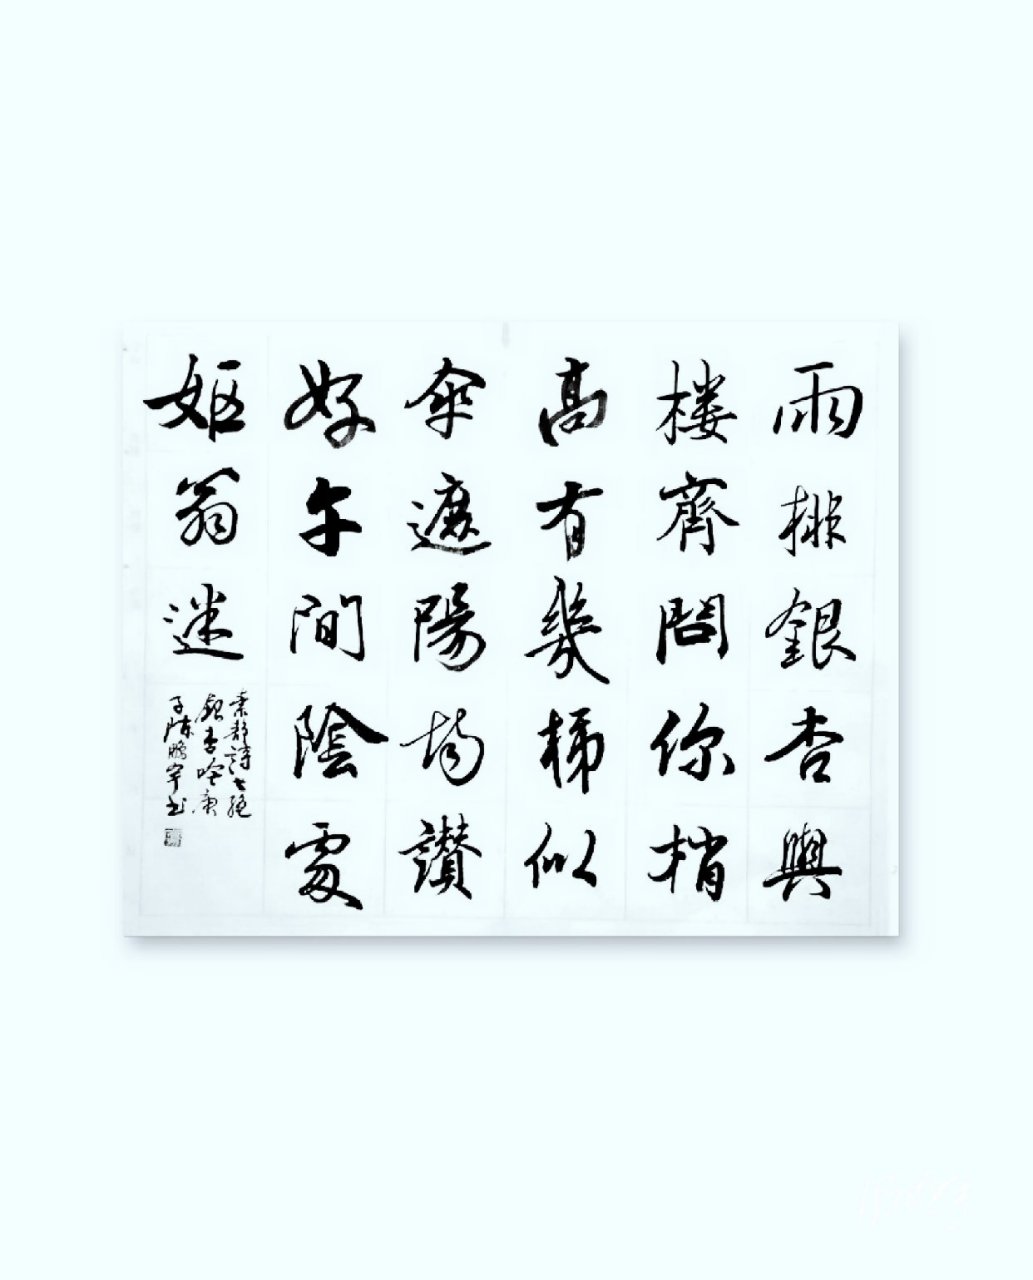 雨排銀杏與
樓齊問你梢
高有幾梯似
傘遮陽均讚
好午間陰處
嫗翁迷
詩七絕
銀杏吟庚
子陳鵬宇書